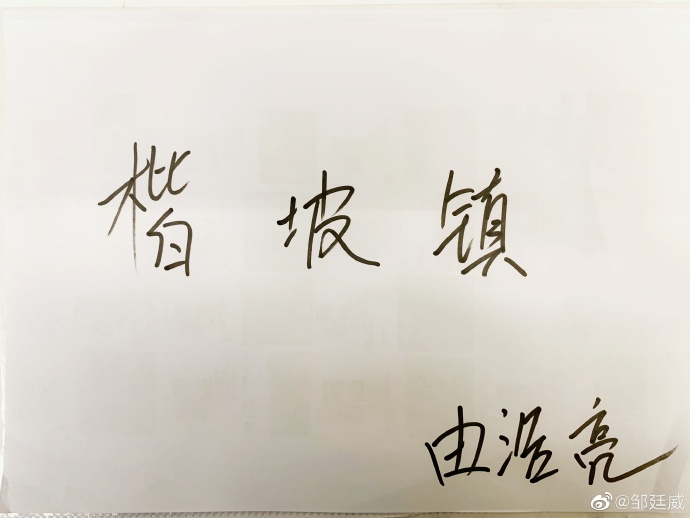 楷坡镇
由浩亮
@邹廷威